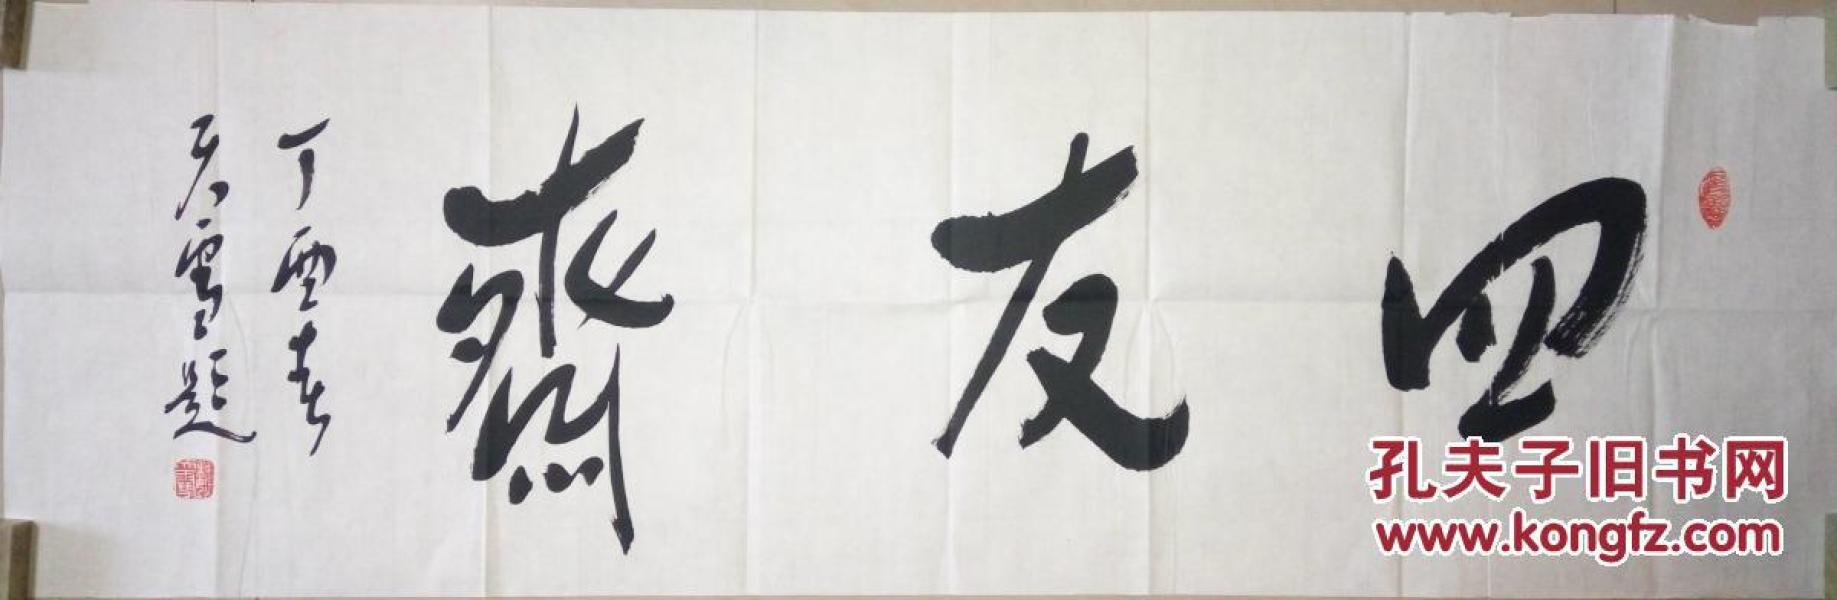 四友齋
丁酉春
雪題
孔夫子旧书网
www.kongfz.com